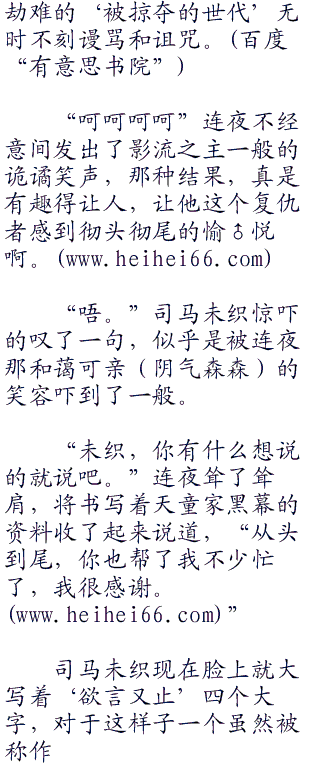 劫难的‘被掠夺的世代’无
时不刻谩骂和诅咒。(百度
“有意思书院”)
“呵呵呵呵”连夜不经
意间发出了影流之主一般的
诡谲笑声，那种结果，真是
有趣得让人，让他这个复仇
者感到彻头彻尾的愉♂悦
啊。(www.heihei66.com)
“唔。”司马未织惊吓
的叹了一句，似乎是被连夜
那和蔼可亲（阴气森森）的
笑容吓到了一般。
“未织，你有什么想说
的就说吧。”连夜耸了耸
肩，将书写着天童家黑幕的
资料收了起来说道，“从头
到尾，你也帮了我不少忙
了，我很感谢。
(www.heihei66.com)”
司马未织现在脸上就大
写着‘欲言又止’四个大
字，对于这样子一个虽然被
称作